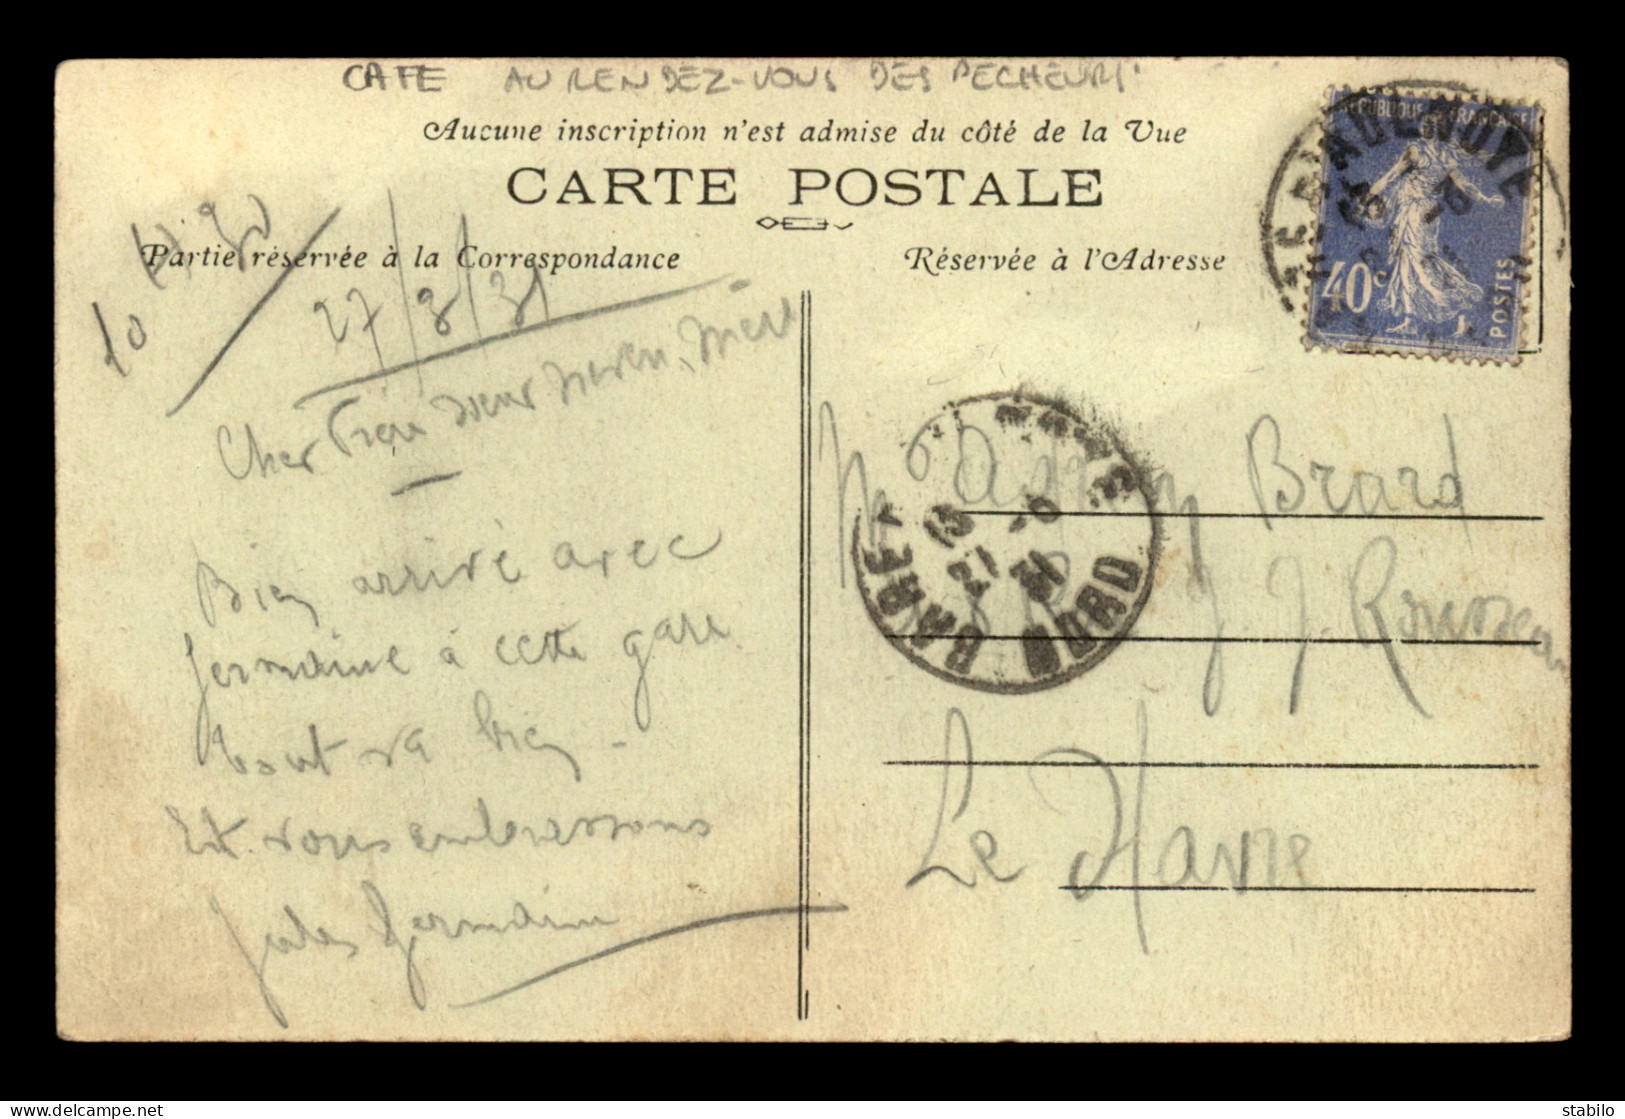 CAFE AU RENDEZ-VOUS DES PECHEURS
Aucune inscription n'est admise du côté de la Vue
CARTE POSTALE
Partie réservée à la Correspondance
Réservée à l'Adresse
REPUBLIQUE FRANCAISE
40c
POSTES
AULNOYE
10 H 30
27/8/31
Cher sœur neveu, mère
Bien arrivé avec
Germaine à cette gare
tout va bien -
Et vous embrassons
Jules Germaine
GARE
NORD
Brard
J. J. Rousseau
Le Havre
stabilo